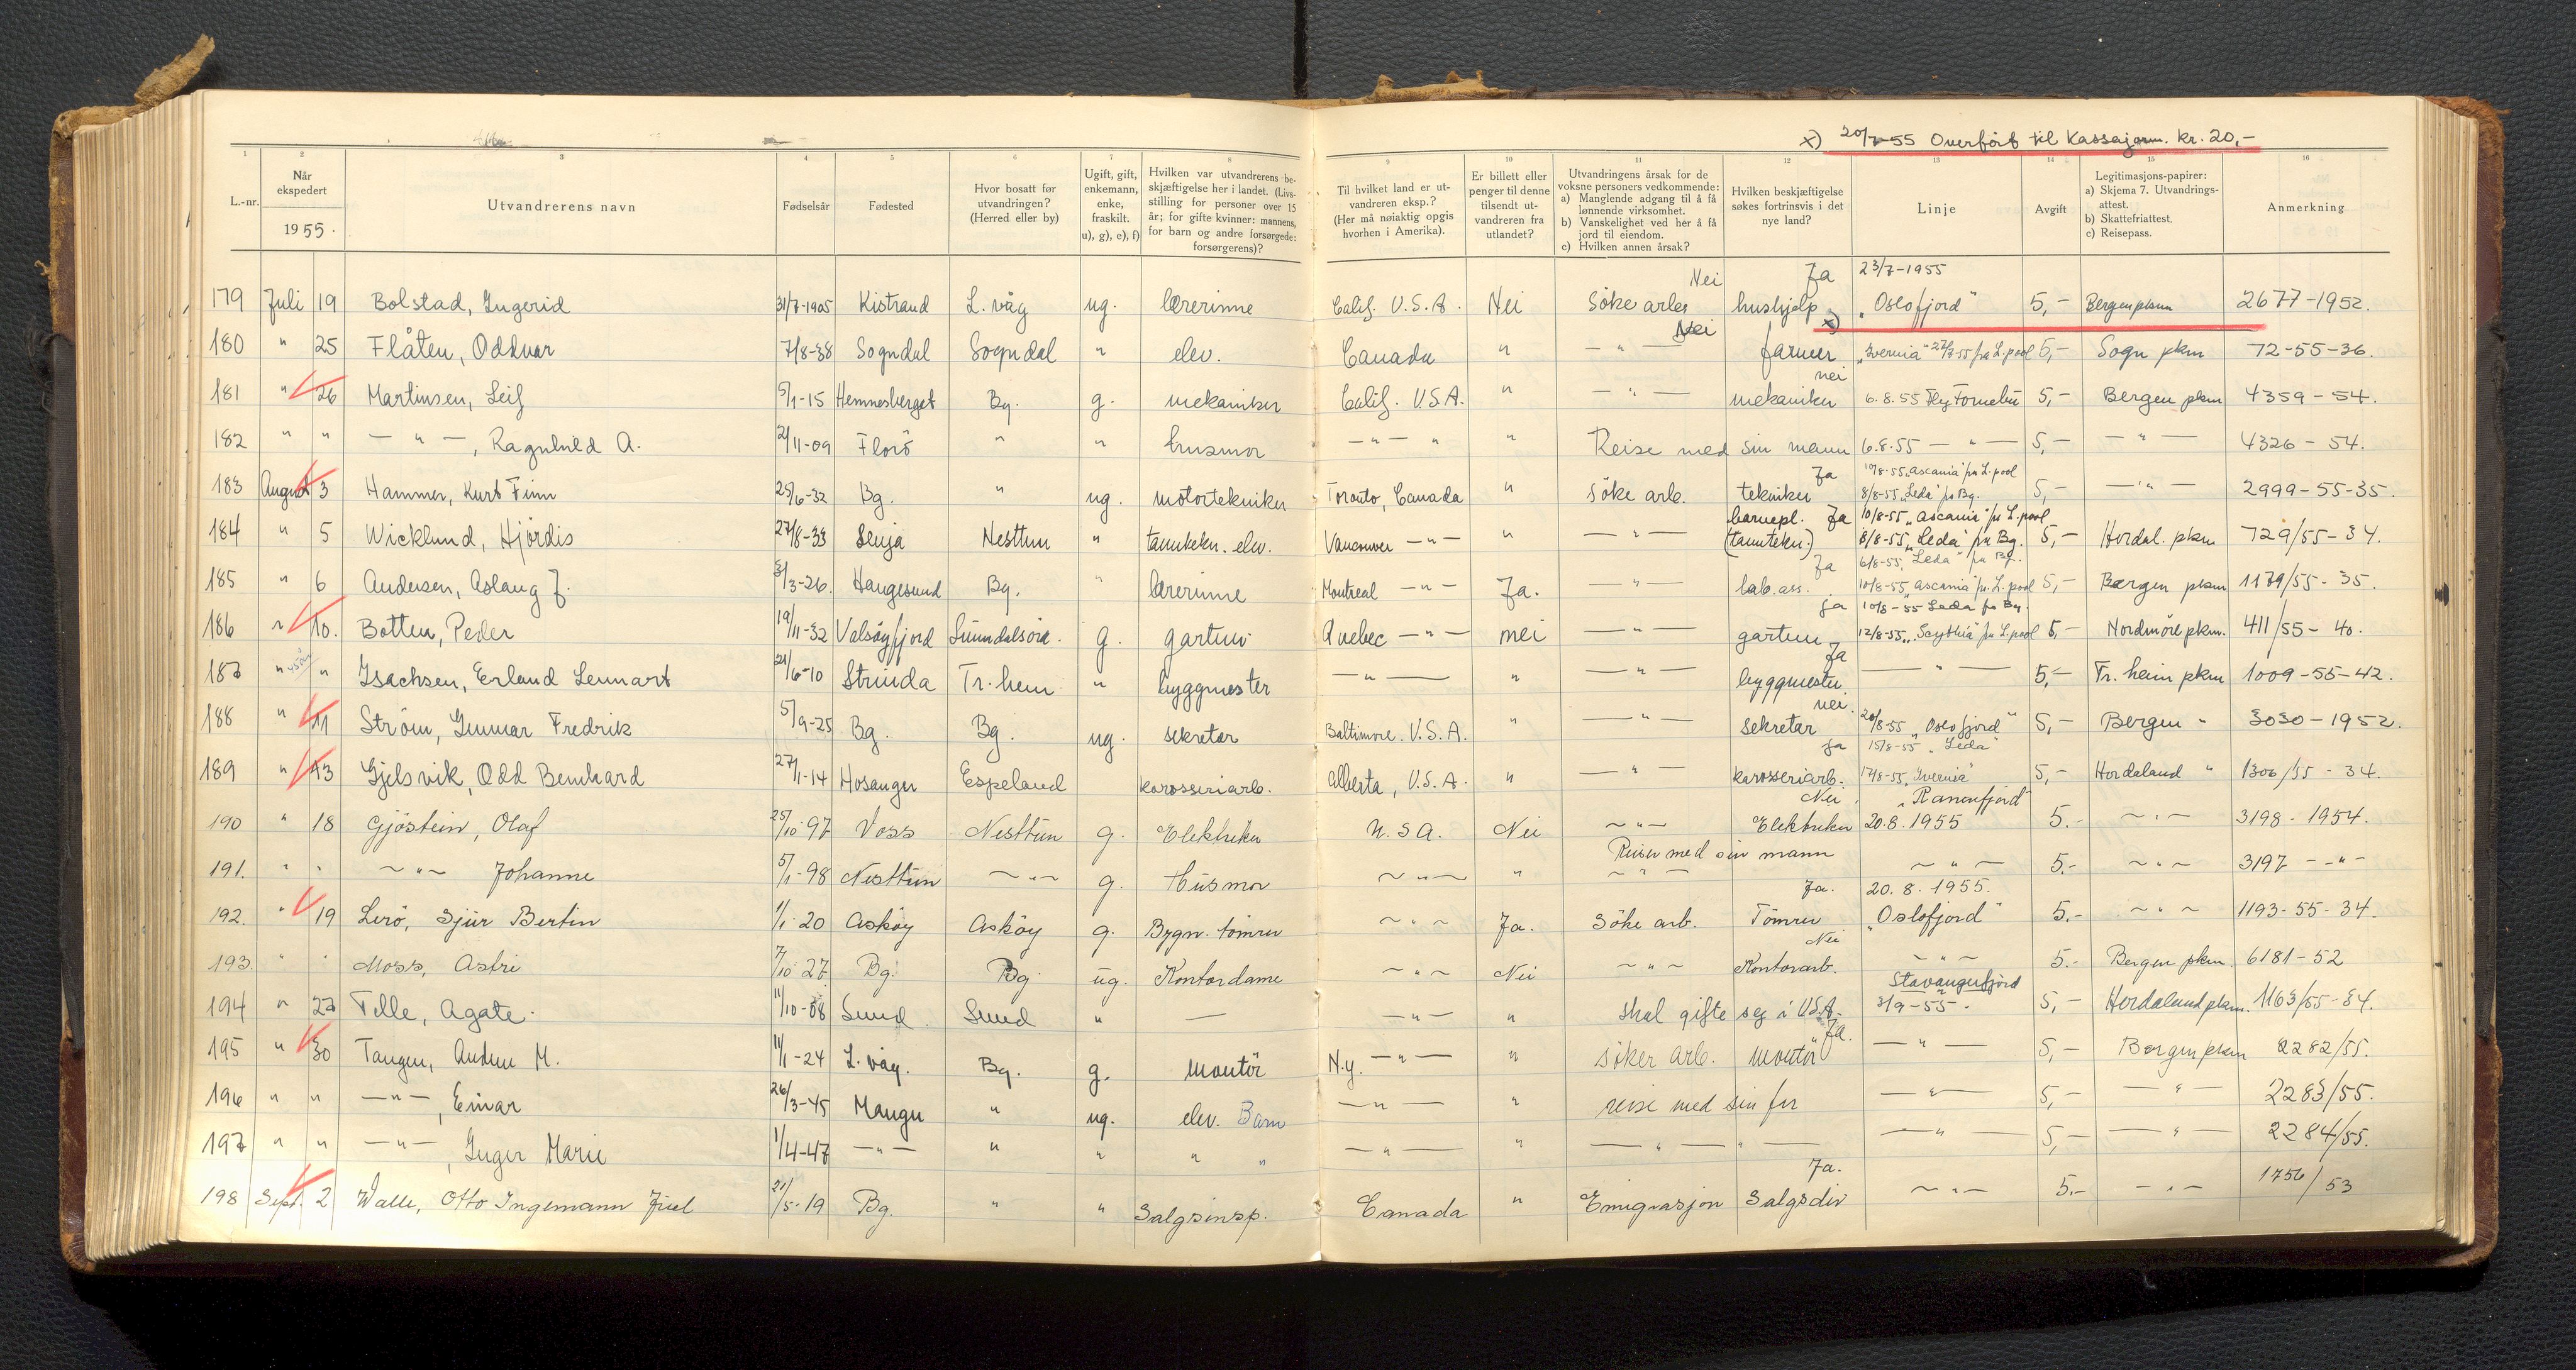 x) 20/7-55 Overført til Kassajorn. kr. 20,-
1 2 3 4 5 6 7 8 9 10 11 12 13 14 15 16
L.-nr. | Når ekspedert 1955. | Utvandrerens navn | Fødselsår | Fødested | Hvor bosatt før utvandringen? (Herred eller by) | Ugift, gift, enkemann, enke, fraskilt. u), g), e), f) | Hvilken var utvandrerens beskjæftigelse her i landet. (Livsstilling for personer over 15 år; for gifte kvinner: mannens, for barn og andre forsørgede: forsørgerens)? | Til hvilket land er utvandreren eksp.? (Her må nøiaktig opgis hvorhen i Amerika). | Er billett eller penger til denne tilsendt utvandreren fra utlandet? | Utvandringens årsak for de voksne personers vedkommende: a) Manglende adgang til å få lønnende virksomhet. b) Vanskelighet ved her å få jord til eiendom. c) Hvilken annen årsak? | Hvilken beskjæftigelse søkes fortrinsvis i det nye land? | Linje | Avgift | Legitimasjons-papirer: a) Skjema 7. Utvandringsattest. b) Skattefriattest. c) Reisepass. | Anmerkning
Nei Ja 23/7-1955
179 Juli 19 Bolstad, Ingerid 31/7-1905 Kistrand L.våg ug. lærerinne Calif. U.S.A. Nei Söke arb. hushjelp x) "Oslofjord" 5,- Bergen pkm 2677-1952.
Nei
180 " 25 Flåten, Oddvar 7/8-38 Sogndal Sogndal " elev. Canada " - " - farmer "Ivernia" 27/7-55 fra L.pool 5,- Sogn pkm 72-55-36.
nei
181 " 26 Martinsen, Leif 5/1-15 Hemnesberget Bg. g. mekaniker Calif. U.S.A. " - " - mekaniker 6.8.55 Fly Fornebu 5,- Bergen pkm 4359-54.
182 " " - " -, Ragnhild A. 2/11-09 Florö " " husmor - " - " " Reise med sin mann 6.8.55 - " - 5,- - " - 4326-54.
Ja 10/8-55 "Ascania" fra L.pool
183 August 3 Hammer, Kurt Finn 25/6-32 Bg. " ug. motortekniker Toronto, Canada " Söke arb. tekniker 8/8-55 "Leda" fra Bg. 5,- - " - 2999-55-35.
barnepl. Ja 10/8-55 "Ascania" fra L.pool
184 " 5 Wicklund, Hjördis 27/8-33 Senja Nesttun " tanntekn. elev. Vancouver - " - " - " - (tanntekn.) 8/8-55 "Leda" fra Bg. 5,- Hordal. pkm 729/55-34.
Ja 6/8-55, "Leda" fra Bg.
185 " 6 Andersen, Aslaug J. 3/3-26. Haugesund Bg. " lærerinne Montreal - " - Ja. - " - lab.ass. 10/8-55 "Ascania" fra L.pool 5,- Bergen pkm 1179/55-35.
Ja 10/8-55 Leda fra Bg.
186 " 10. Botten, Peder 19/11-32 Valsöyfjord Sunndalsöra. g. gartner Quebec - " - nei - " - gartner 12/8-55, "Scythia" fra L.pool 5,- Nordmöre pkm. 411/55-40.
Ja
187 " " Isachsen, Erland Lennart 24/6-10 Strinda Tr.heim " byggmester - " - " - " - byggmester - " - 5,- Tr.heim pkm 1009-55-42.
nei.
188 " 11 Ström, Gunnar Fredrik 5/9-25 Bg. Bg. ug. sekretær Baltimore. U.S.A. " - " - sekretær 20/8-55 "Oslofjord" 5,- Bergen " 3030-1952.
Ja 15/8-55 "Leda"
189 " 13 Gjelsvik, Odd Bernhard 27/1-14 Hosanger Espeland karosseriarb. Alberta, U.S.A. " - " - karosseriarb. 17/8-55 "Ivernia" 5,- Hordaland " 1306/55-34.
Nei "Ranenfjord"
190 " 18 Gjöstein, Olaf 25/10-97 Voss Nesttun g. Elektriker U.S.A. Nei - " - Elektriker 20.8.1955 5.- - " - 3198-1954.
Reiser med sin mann
191. " " - " - Johanne 5/1-98 Nesttun - " - g. Husmor - " - " - " - - " - 5.- - " - 3197 - " -
Ja. 20.8.1955.
192. " 19 Lerö, Sjur Bertin 1/1-20 Asköy Asköy g. Bygn. tömrer - " - Ja. Söke arb. Tömrer "Oslofjord" 5.- - " - 1193-55-34.
Nei
193. " " Moss, Astri 7/10-27 Bg. Bg. ug. Kontordame - " - Nei - " - Kontorarb. - " - 5.- Bergen pkm. 6181-52
Stavangerfjord
194 " 22 Telle, Agate. 11/10-08 Sund. Sund " - - " - " Skal gifte seg i USA. 3/9-55. 5,- Hordaland pkm. 1163/55-34.
Ja.
195 " 30 Tangen, Anders M. 11/1-24 L.våg. Bg. g. Montör N.y. - " - " söker arb. montör - " - 5,- Bergen pkm 2282/55.
196 " " - " -, Einar 26/3-45 Manger " ug. elev. Barn - " - " reise med sin far - " - 5,- - " - 2283/55.
197 " " - " -, Inger Marie 1/4-47 - " - " " " " - " - " - " - " - - " - 5,- - " - 2284/55.
Ja.
198 Sept. 2 Walle, Otto Ingemann Juel 21/5-19 Bg. " " Salgsinsp. Canada " Emigrasjon Salgsdir - " - 5.- - " - 1756/53